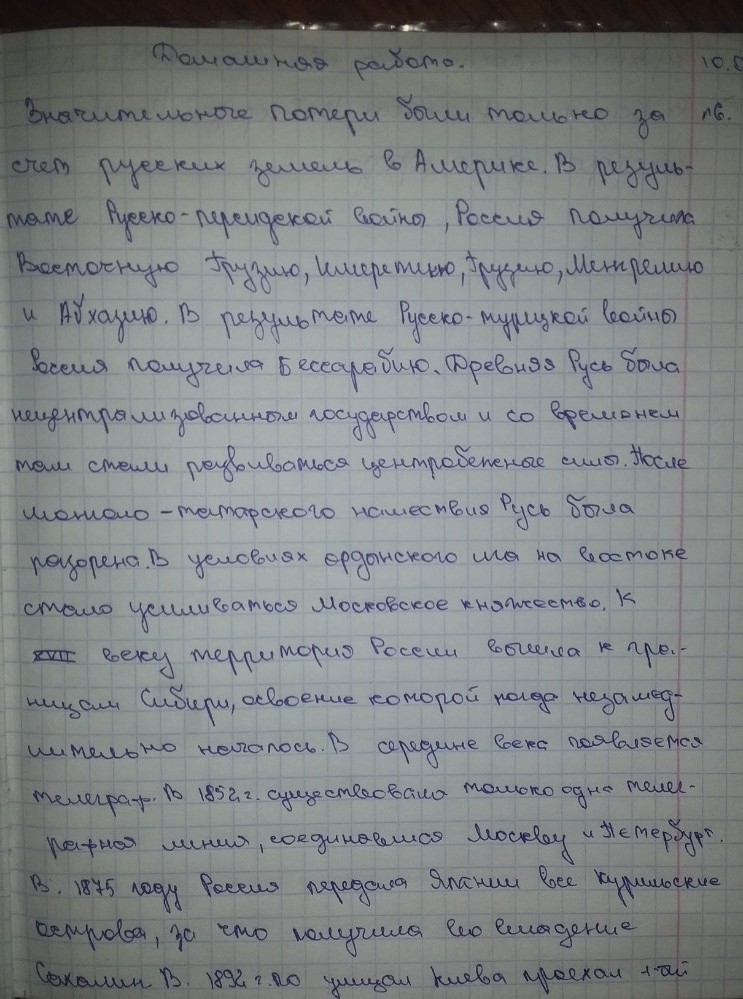 Домашняя работа. 10.0
Значительные потери были только за 16.
счет русских земель в Америке. В резуль-
тате Русско-персидской войны, Россия получила
Восточную Грузию, Имеретию, Грузию, Менгрелию
и Абхазию. В результате Русско-турицкой войны
Россия получила Бессарабию. Древняя Русь была
нецентрализованным государством и со временем
там стали развиваться центробежные силы. После
монголо-татарского нашествия Русь была
разорена. В условиях ордынского ига на востоке
стало усиливаться Московское княжество. К
XVII веку территория России вышла к гра-
ницам Сибири, освоение которой тогда незамед-
лительно началось. В середине века появляется
телеграф. В 1852 г. существовала только одна телег-
рафная линия, соединявшая Москву и Петербург.
В. 1875 году Россия передала Японии все курильские
острова, за что получила во владение
Сахалин В. 1892 г. по улицам Киева проехал 1-ый